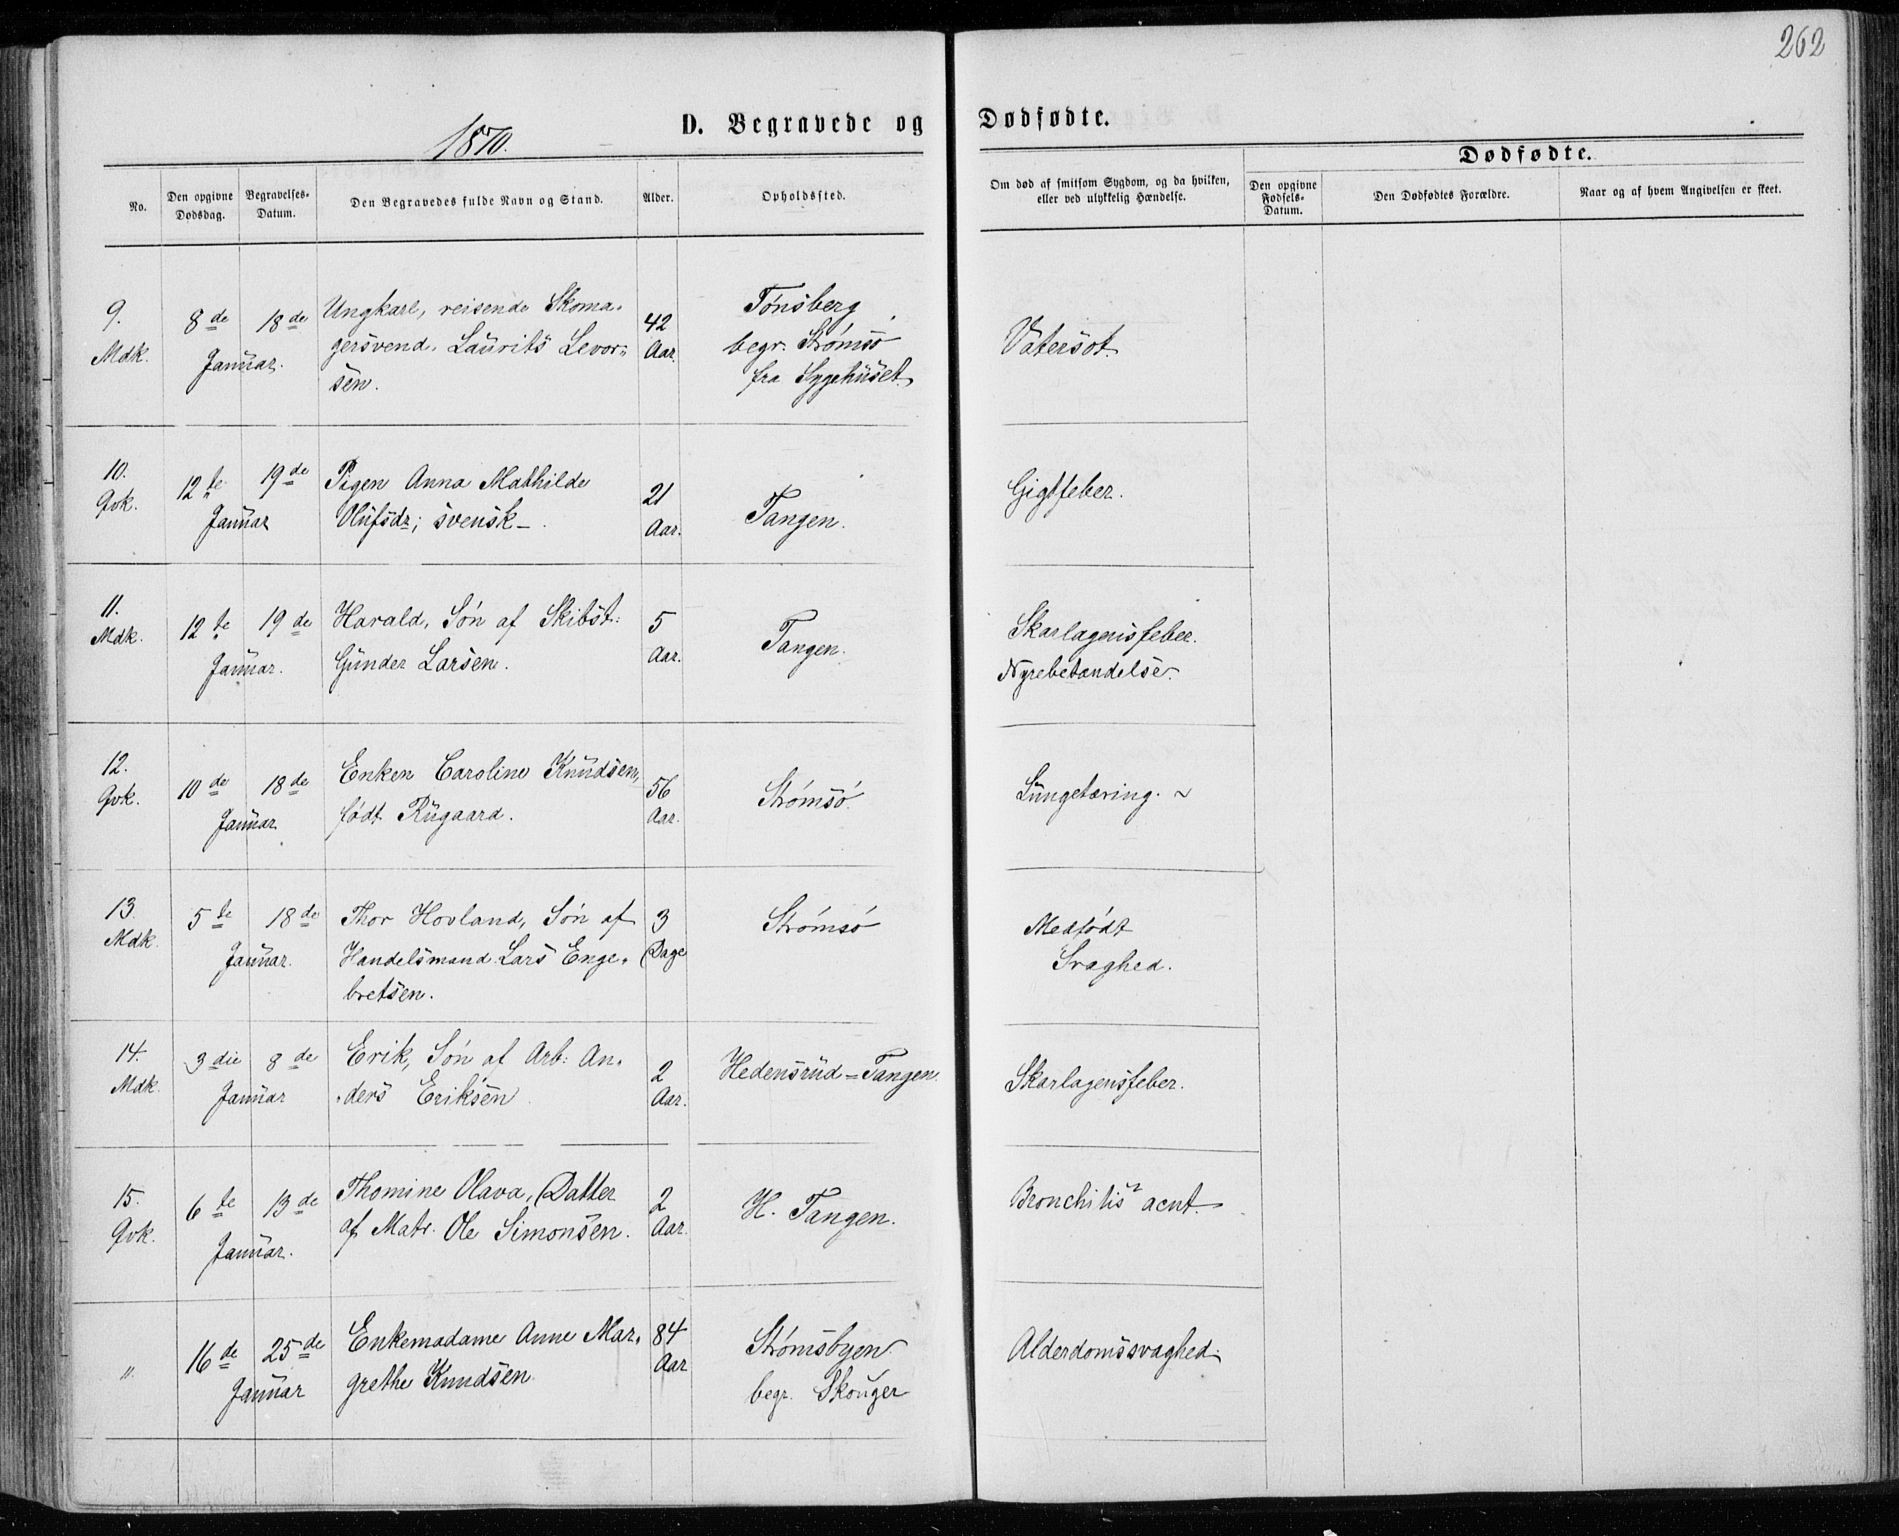 262
1870.
D. Begravede og Dødfødte.
Dødfødte.
No.
Den opgivne Dødsdag.
Begravelses-Datum.
Den Begravedes fulde Navn og Stand.
Alder.
Opholdssted.
Om død af smitsom Sygdom, og da hvilken, eller ved ulykkelig Hændelse.
Den opgivne Fødsels-Datum.
Den Dødfødtes Forældre.
Naar og af hvem Angivelsen er skeet.
9. Mdk.
8de 18de Januar.
Ungkarl, reisende Skoma-
gersvend. Laurits Levor-
sen.
42 Aar.
Tønsberg
begr. Strømsø
fra Sygehuset.
Vatersot.
10. Qvk.
12te 19de Januar
Pigen Anna Mathilde
Olufsdr; svensk-.
21 Aar.
Tangen.
Gigtfeber.
11. Mdk.
12te 19de Januar.
Harald, Søn af Skibst:
Gunder Larsen.
5 Aar.
Tangen.
Skarlagensfeber.
Nyrebetændelse.
12. Qvk.
10de 18de Januar
Enken Caroline Knudsen,
født Rugaard.
56 Aar.
Strømsø.
Lungetæring.
13. Mdk.
5te 18de Januar.
Thor Hovland, Søn af
Handelsmand Lars Enge-
bretsen.
3 Dage
Strømsø
Medfødt
Svaghed.
14. Mdk.
3die 8de Januar
Erik, Søn af Arb: An-
ders Eriksen.
2 Aar.
Hedensrud-Tangen.
Skarlagensfeber.
15. Qvk.
6te 13de Januar.
Thomine Olava, Datter
af Matr. Ole Simonsen.
2 Aar.
H. Tangen.
Bronchitis acut.
"
16de 25de Januar
Enkemadame Anne Mar-
grethe Knudsen.
84 Aar
Strømsbyen
begr. Skouger
Alderdomssvaghed.